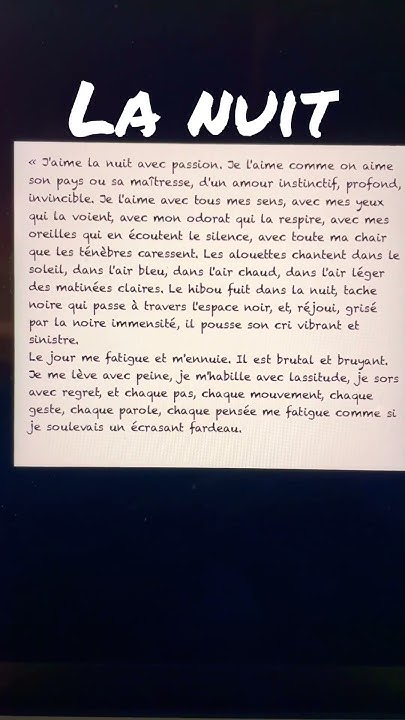 La nuit
« J'aime la nuit avec passion. Je l'aime comme on aime
son pays ou sa maîtresse, d'un amour instinctif, profond,
invincible. Je l'aime avec tous mes sens, avec mes yeux
qui la voient, avec mon odorat qui la respire, avec mes
oreilles qui en écoutent le silence, avec toute ma chair
que les ténèbres caressent. Les alouettes chantent dans le
soleil, dans l'air bleu, dans l'air chaud, dans l'air léger
des matinées claires. Le hibou fuit dans la nuit, tache
noire qui passe à travers l'espace noir, et, réjoui, grisé
par la noire immensité, il pousse son cri vibrant et
sinistre.
Le jour me fatigue et m'ennuie. Il est brutal et bruyant.
Je me lève avec peine, je m'habille avec lassitude, je sors
avec regret, et chaque pas, chaque mouvement, chaque
geste, chaque parole, chaque pensée me fatigue comme si
je soulevais un écrasant fardeau.